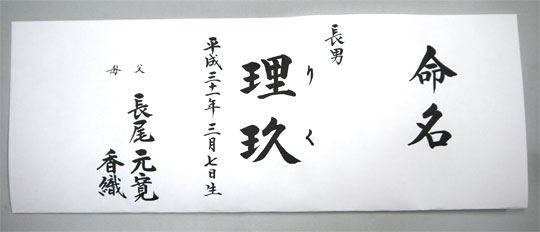 命名
長男
りく
理玖
平成三十一年 三月七日生
父 長尾 元寛
母 香織